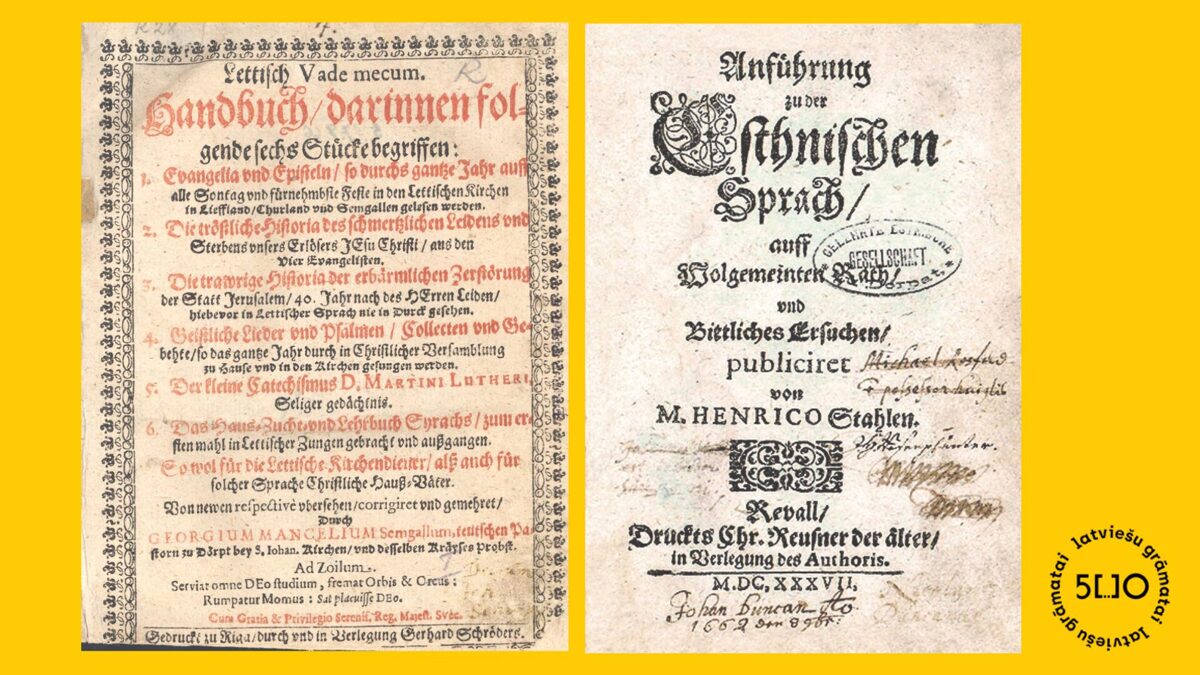 Lettisch Vade mecum.
Handbuch/darinnen fol-
gende sechs Stücke begriffen:
1. Evangelia vnd Episteln/so durchs gantze Jahr auff
alle Sontag vnd fürnehmbste Feste in den Lettischen Kirchen
in Lieffland/Churland vnd Semgallen gelesen werden.
2. Die tröstliche Historia des schmertzlichen Leidens vnd
Sterbens vnsers Erlösers JEsu Christi/aus den
vier Evangelisten.
3. Die trawrige Historia der erbärmlichen Zerstörung
der Statt Jerusalem/40. Jahr nach des HErren Leiden/
hiebevor in Lettischer Sprach nie in Durck gesehen.
4. Geistliche Lieder vnd Psalmen/Collecten vnd Ge-
behte/so das gantze Jahr durch in Christlicher Versamblung
zu Hause vnd in den Kirchen gesungen werden.
5. Der kleine Catechismus D. MARTINI LUTHERI,
Seliger gedächtnis.
6. Das Haus-Zucht-vnd Lehrbuch Syrachs/zum er-
sten mahl in Lettischer Zungen gebracht vnd außgangen.
So wol für die Lettische Kirchendiener/alß auch für
solcher Sprache Christliche Hauß-Väter.
Von newen respectivè vbersehen/corrigiret vnd gemehret/
Durch
GEORGIUM MANCELIUM Semgallum, teutschen Pa-
storn zu Dörpt bey S. Iohan. Kirchen/vnd desselben Kräyses Probst.
Ad Zoilum.
Serviat omne DEo studium, fremat Orbis & Orcus:
Rumpatur Momus: Sat placuisse DEO.
Cum Gratia & Privilegio Sereniss. Reg. Majest. Svec.
Gedruckt zu Riga/durch vnd in Verlegung Gerhard Schröders.
Anführung
zu der
Esthnischen
Sprach/
auff
Wolgemeinten Rath/
vnd
Bittliches Ersuchen/
publiciret
von
M. HENRICO Stahlen.
Revall/
Druckts Chr. Reusner der älter/
in Verlegung des Authoris.
M.DC,XXXVII.
GELEHRTE ESTNISCHE
GESELLSCHAFT
Dorpat
Michael
possessor
Johan Duncan
1662 den
latviešu grāmatai latviešu grāmatai latviešu grāmatai
5[...]0